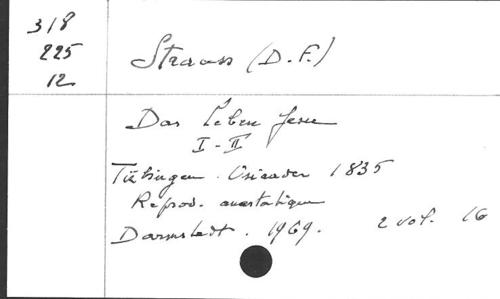 318
225
12
Strauss (D.F.)
Das Leben Jesu
I-II
Tübingen. Osiander 1835
Reprod. anastatique
Darmstadt. 1969. 2 vol. 16